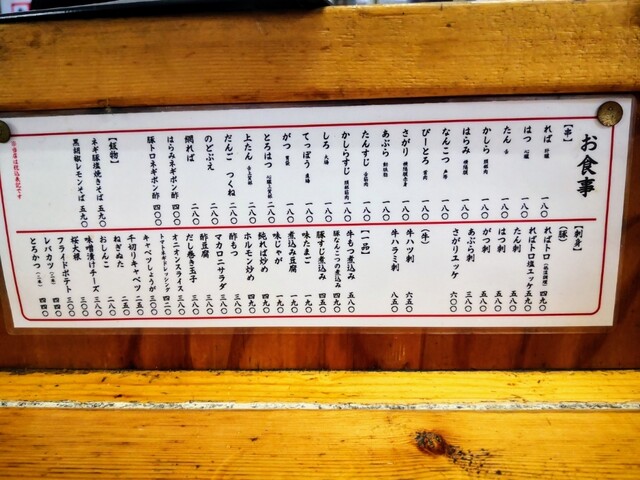 お食事
【串】
ればー 肝臓 一八〇
はつ 心臓 一八〇
たん 舌 一八〇
かしら 頭部肉 一八〇
はらみ 横隔膜 一八〇
なんこつ 一八〇
ぴーとろ 首肉 一八〇
さがり 一八〇
あぶら 一八〇
たんすじ 一八〇
かしらすじ 一八〇
しろ 大腸 一八〇
てっぽう 直腸 一八〇
がつ 胃袋 一八〇
とろはつ 二八〇
上たん 二八〇
だんご つくね 二八〇
のどぶえ 二八〇
網れば 二八〇
はらみネギポン酢 四〇〇
豚トロネギポン酢 四〇〇
【飯物】
ネギ豚塩焼きそば 五九〇
黒胡椒レモンそば 五九〇
【刺身】
(豚)
ればトロ 四九〇
ればトロ塩エッケ 五九〇
たん刺 五八〇
はつ刺 五八〇
がつ刺 五八〇
あぶら刺 三八〇
さがりエッケ 六〇〇
(牛)
牛ハツ刺 六五〇
牛ハラミ刺 八五〇
【一品】
牛もつ煮込み 五八〇
豚なんこつの煮込み 四九〇
豚すじ煮込み 五四〇
味たまご 一九〇
煮込み豆腐 一九〇
味じゃが 一九〇
純れば炒め 四九〇
ホルモン炒め 四九〇
酢もつ 三八〇
マカロニサラダ 三八〇
酢豆腐 三八〇
だし巻き玉子 三八〇
オニオンスライス 三五〇
トマトネギドレッシング 四二〇
キャベツしょうが 三〇〇
千切りキャベツ 二五〇
ねぎぬた 二五〇
おしんこ 二八〇
味噌漬けチーズ 三八〇
桜大根 三〇〇
フライドポテト 三〇〇
レバカツ(二本) 四四〇
とろかつ(二本) 四四〇
※当店は税込表記です